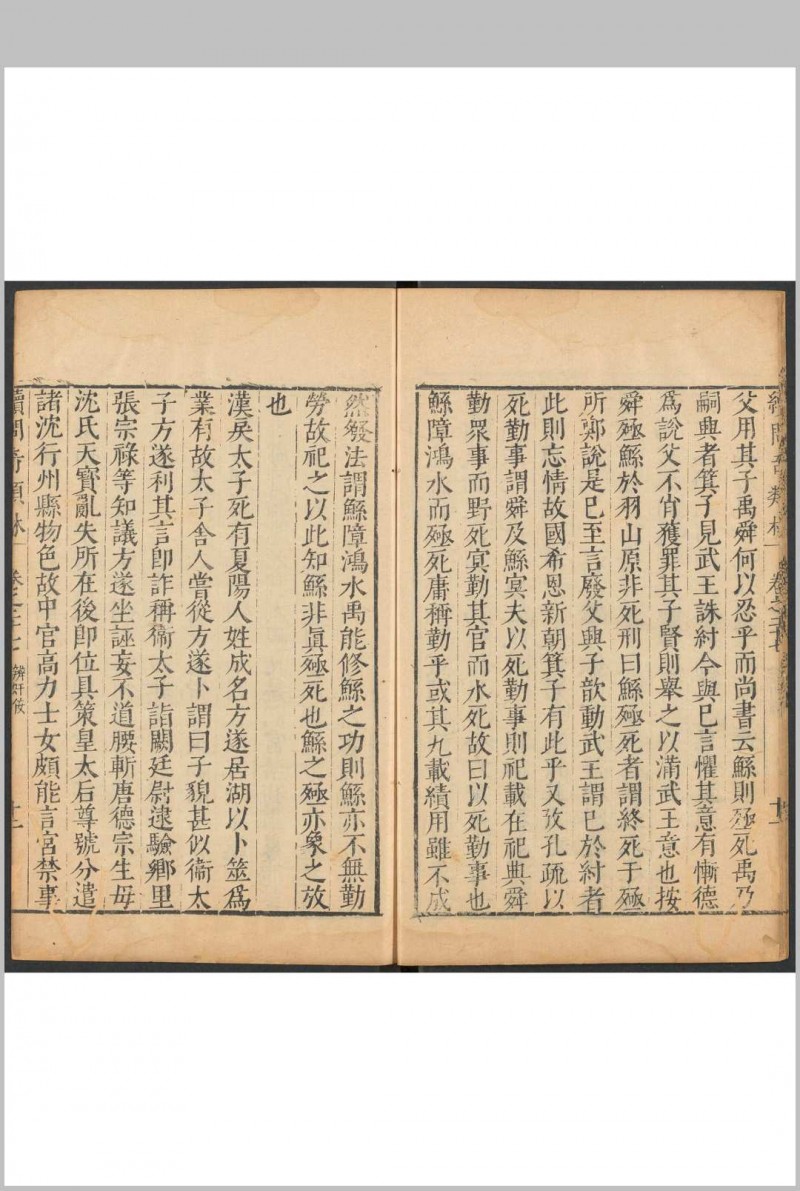 父用其子禹舜何以忍乎而尚書云鯀則殛死禹乃
嗣興者箕子見武王誅紂今與巳言懼其意有慚德
爲說父不肖獲罪其子賢則舉之以滿武王意也按
舜殛鯀於羽山原非死刑曰鯀殛死者謂終死于殛
所鄭說是巳至言廢父興子歆動武王謂巳於紂者
此則忘情故國希恩新朝箕子有此乎又攷孔疏以
死勤事謂舜及鯀冥夫以死勤事則祀載在祀典舜
勤眾事而野死冥勤其官而水死故曰以死勤事也
鯀障鴻水而殛死庸稱勤乎或其九載績用雖不成
然發法謂鯀障鴻水禹能修鯀之功則鯀亦不無勤
勞故祀之以此知鯀非眞殛死也鯀之殛亦象之放
也
漢戾太子死有夏陽人姓成名方遂居湖以卜筮爲
業有故太子舍人嘗從方遂卜謂曰子貌甚似衞太
子方遂利其言卽詐稱衞太子詣闕廷尉逮驗鄉里
張宗祿等知議方遂坐誣妄不道腰斬唐德宗生母
沈氏天寶亂失所在後卽位具策皇太后尊號分遣
諸沈行州縣物色故中官高力士女頗能言宮禁事
續問奇類林 卷之二十七 辨奸佞 十二